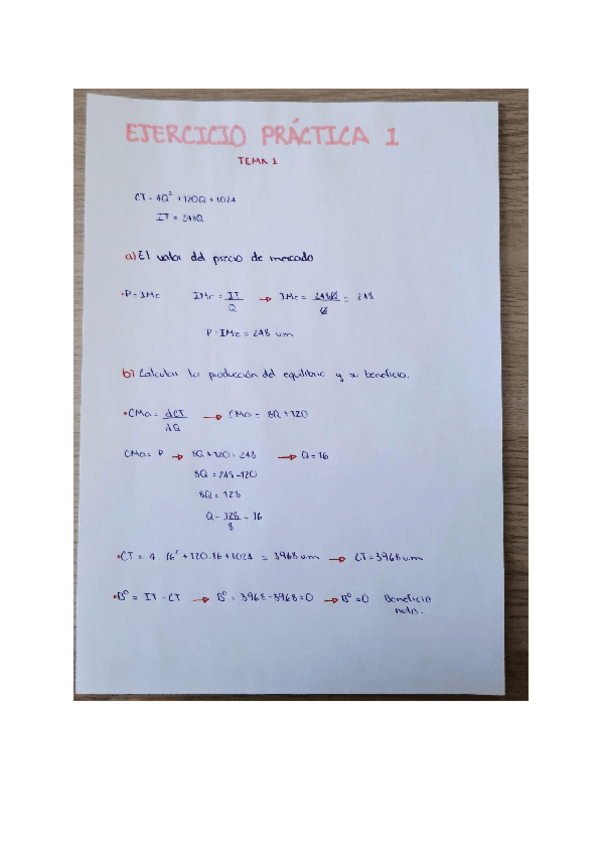 EJERCICIO PRÁCTICA 1
TEMA 1
CT = 4Q² + 120Q + 1024
IT = 248Q
a) El valor del precio de mercado
• P = IMe IMe = IT/Q → IMe = 248Q/Q = 248
P = IMe = 248 u.m
b) Calcular la producción del equilibrio y su beneficio.
• CMa = dCT/dQ → CMa = 8Q + 120
CMa = P → 8Q + 120 = 248 → Q = 16
8Q = 248 - 120
8Q = 128
Q = 128/8 = 16
• CT = 4 . 16² + 120 . 16 + 1024 = 3968 u.m → CT = 3968 u.m
• Bº = IT - CT → Bº = 3968 - 3968 = 0 → Bº = 0 Beneficio
nulo.